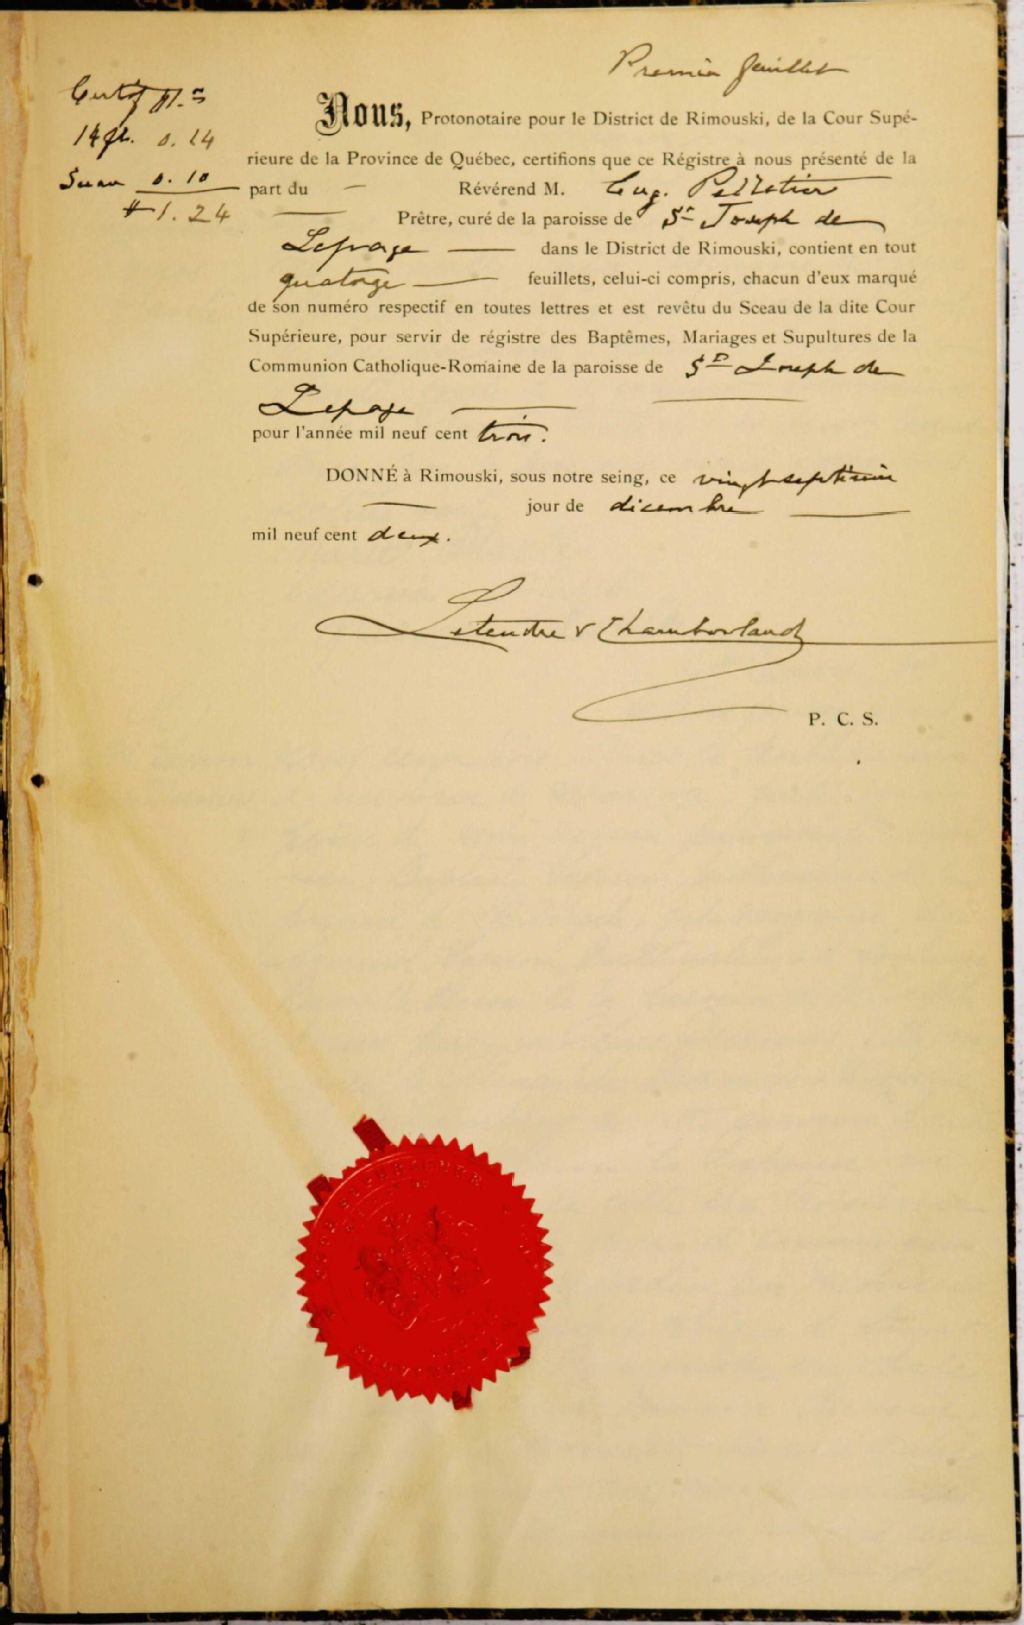 Premier feuillet
Certif
14 fll. 0.14
Sceau 0.10
$1.24
Nous, Protonotaire pour le District de Rimouski, de la Cour Supé-
rieure de la Province de Québec, certifions que ce Régistre à nous présenté de la
part du — Révérend M. Eug. Pelletier
— Prêtre, curé de la paroisse de St Joseph de
Lepage — dans le District de Rimouski, contient en tout
quatorze — feuillets, celui-ci compris, chacun d'eux marqué
de son numéro respectif en toutes lettres et est revêtu du Sceau de la dite Cour
Supérieure, pour servir de régistre des Baptêmes, Mariages et Supultures de la
Communion Catholique-Romaine de la paroisse de St Joseph de
Lepage —
pour l'année mil neuf cent trois.
DONNÉ à Rimouski, sous notre seing, ce vingt septième
— jour de décembre —
mil neuf cent deux.
Letendre & Chamberland
P. C. S.